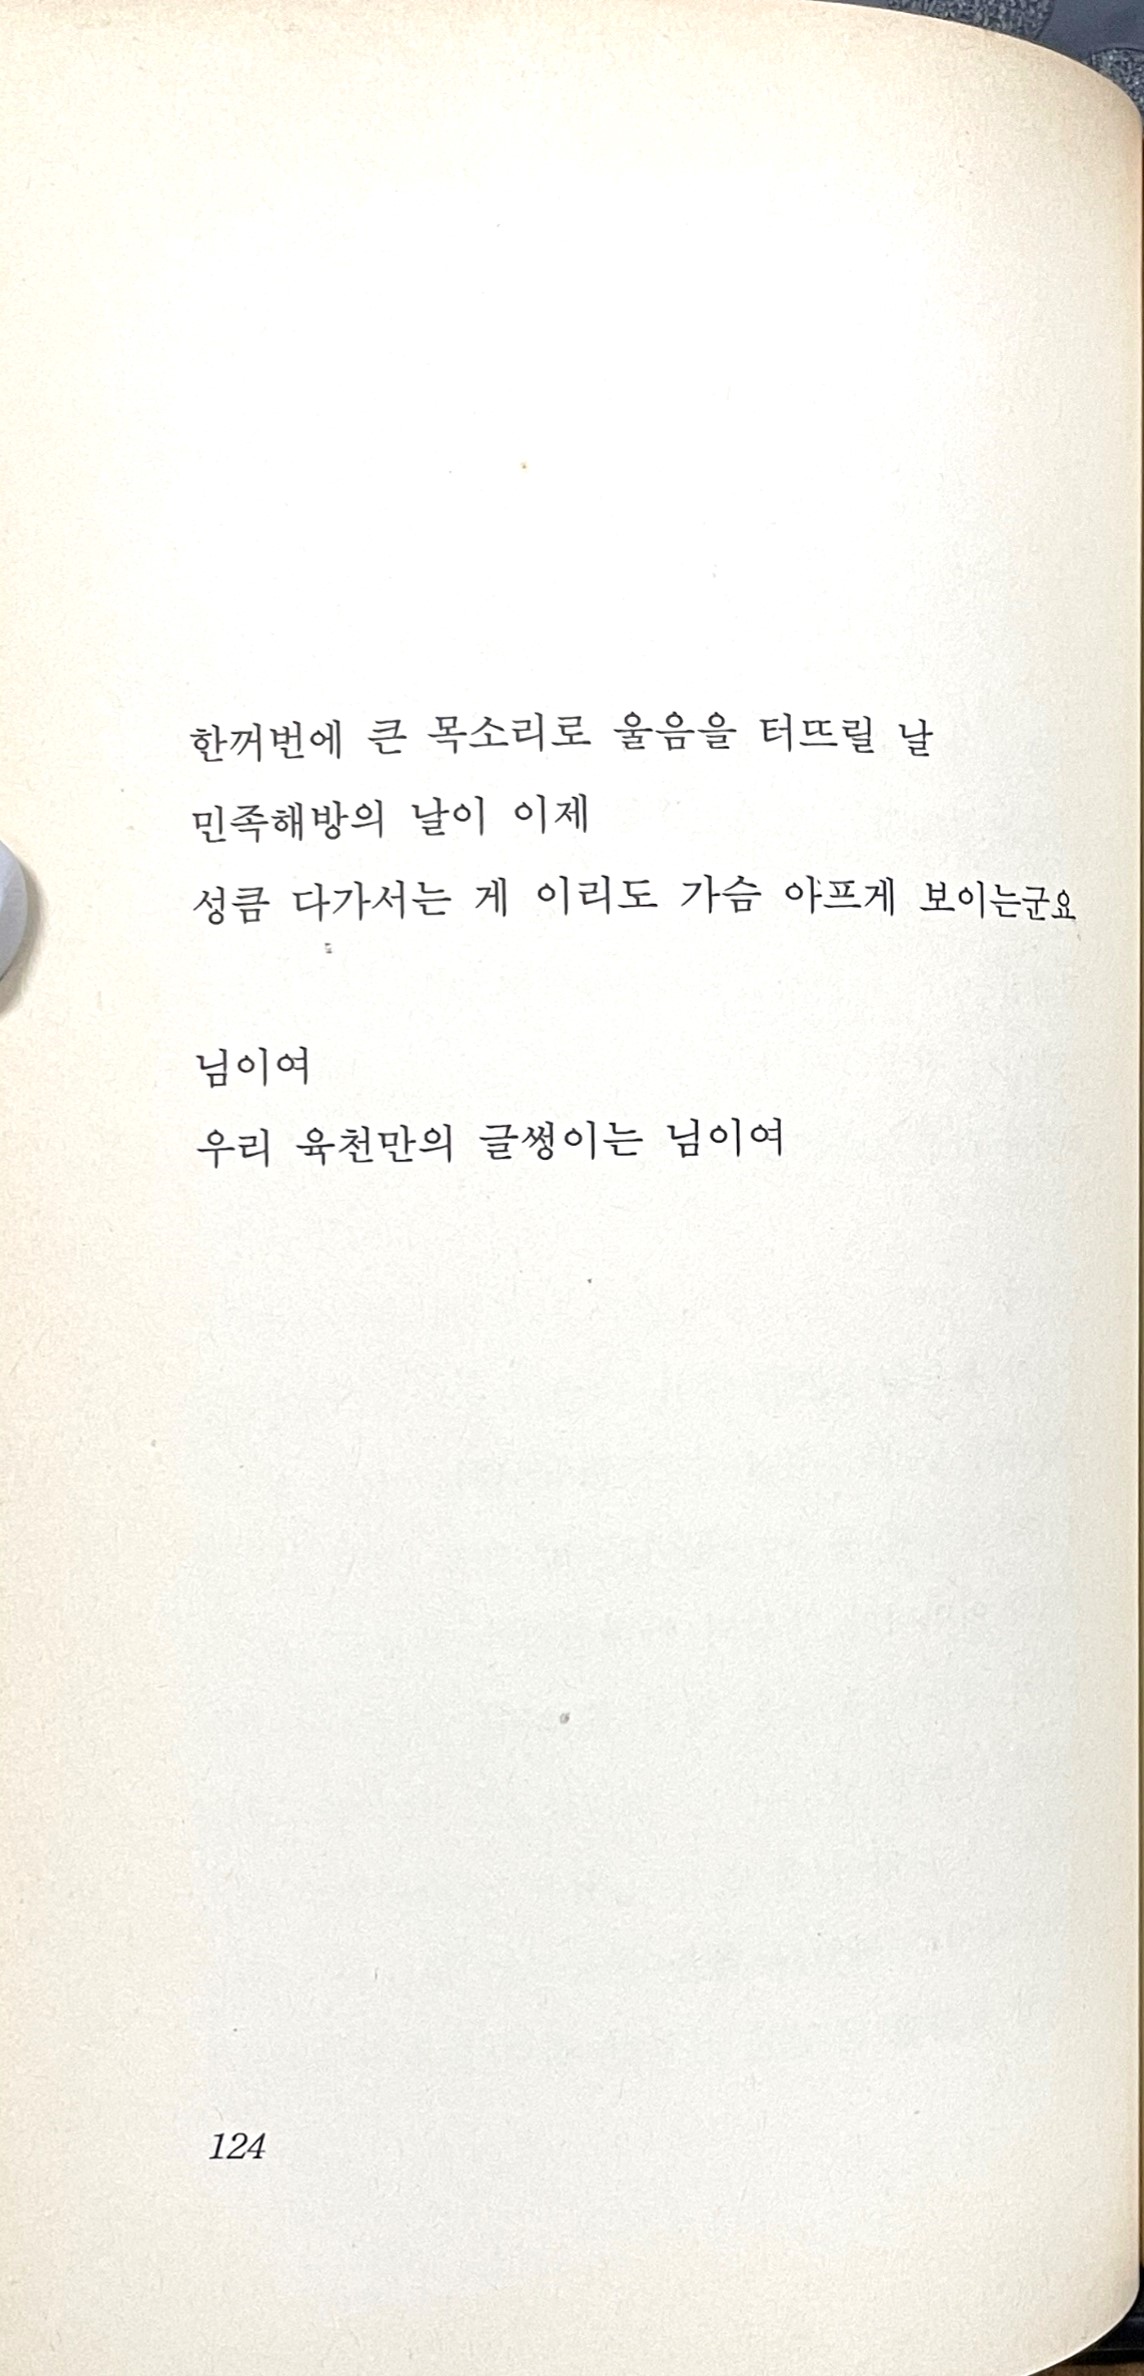 한꺼번에 큰 목소리로 울음을 터뜨릴 날
민족해방의 날이 이제
성큼 다가서는 게 이리도 가슴 아프게 보이는군요
님이여
우리 육천만의 글썽이는 님이여
124